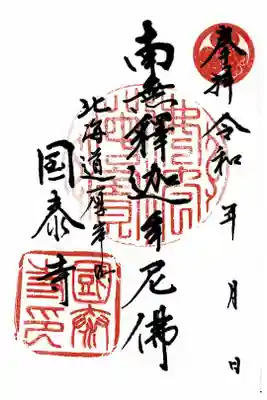 奉拝 令和 年 月 日
南無釋迦牟尼佛
北海道厚岸町
国泰寺
國泰寺印